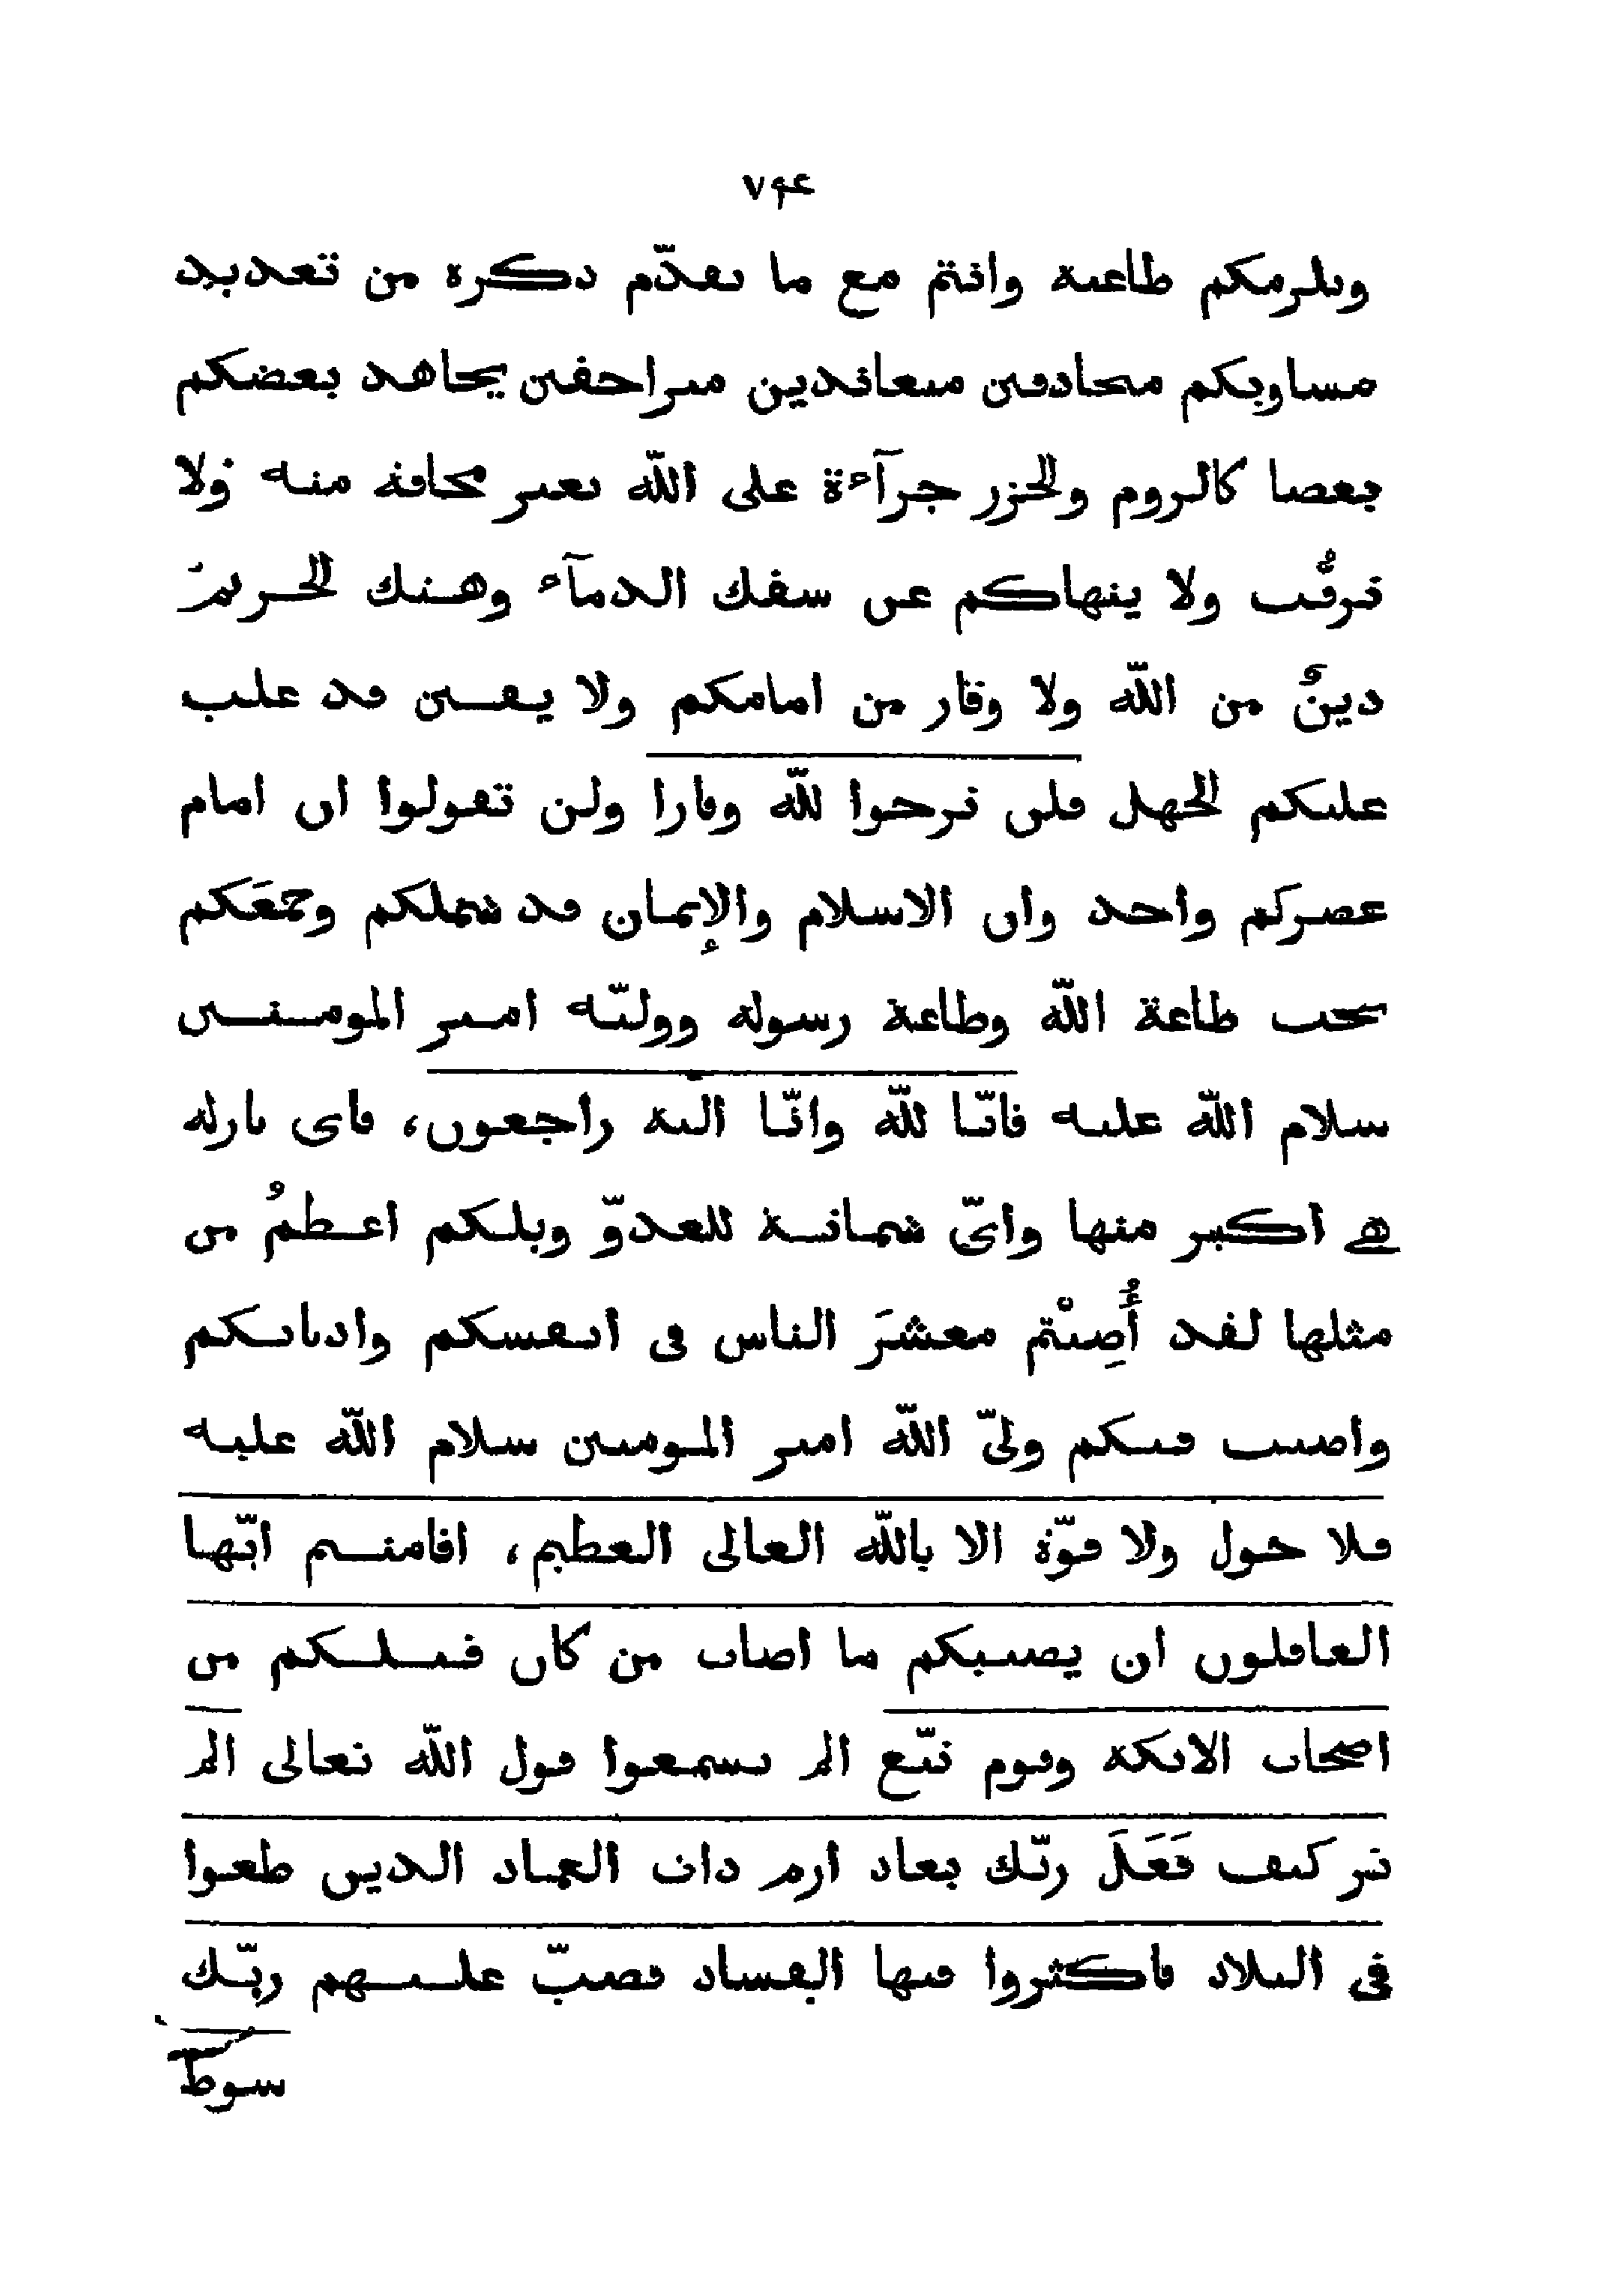 ٧٩٤
ويلزمكم طاعته وانتم مع ما تقدّم ذكره من تعديد
مساويكم متحاذقين متعاندين متزاحفين يجاهد بعضكم
بعضا كالروم والخزر جرآءة على اللّه بغير مخافة منه ولا
ترقُّب ولا ينهاكم عن سفك الدمآء وهتك الحريم
دينٌ من اللّه ولا وقار من امامكم ولا يقين قد غلب
عليكم الجهل فلن ترجوا للّه وقارا ولن تقولوا ان امام
عصركم واحد وان الاسلام والإيمان قد شملكم وجمَعَكم
تحت طاعة اللّه وطاعة رسوله ووليّه امير المومنين
سلام اللّه عليه فانّا للّه وانّا اليه راجعون، فاى نازلة
هى اكبر منها واىّ شماتة للعدوّ ويلكم اعظمُ من
مثلها لقد أُصِبْتُم معشرَ الناس فى انفسكم واديانكم
واصيب فيكم ولىّ اللّه امير المومنين سلام اللّه عليه
فلا حول ولا قوّة الا باللّه العالى العظيم، افامنتم ايّها
الغافلون ان يصيبكم ما اصاب من كان قبلكم من
اصحاب الايكة وقوم تبّع الم تسمعوا قول اللّه تعالى الم
تر كيف فَعَلَ ربّك بعاد ارم ذات العماد الذين طغوا
فى البلاد فاكثروا فيها الفساد فصبّ عليهم ربّك
سوط